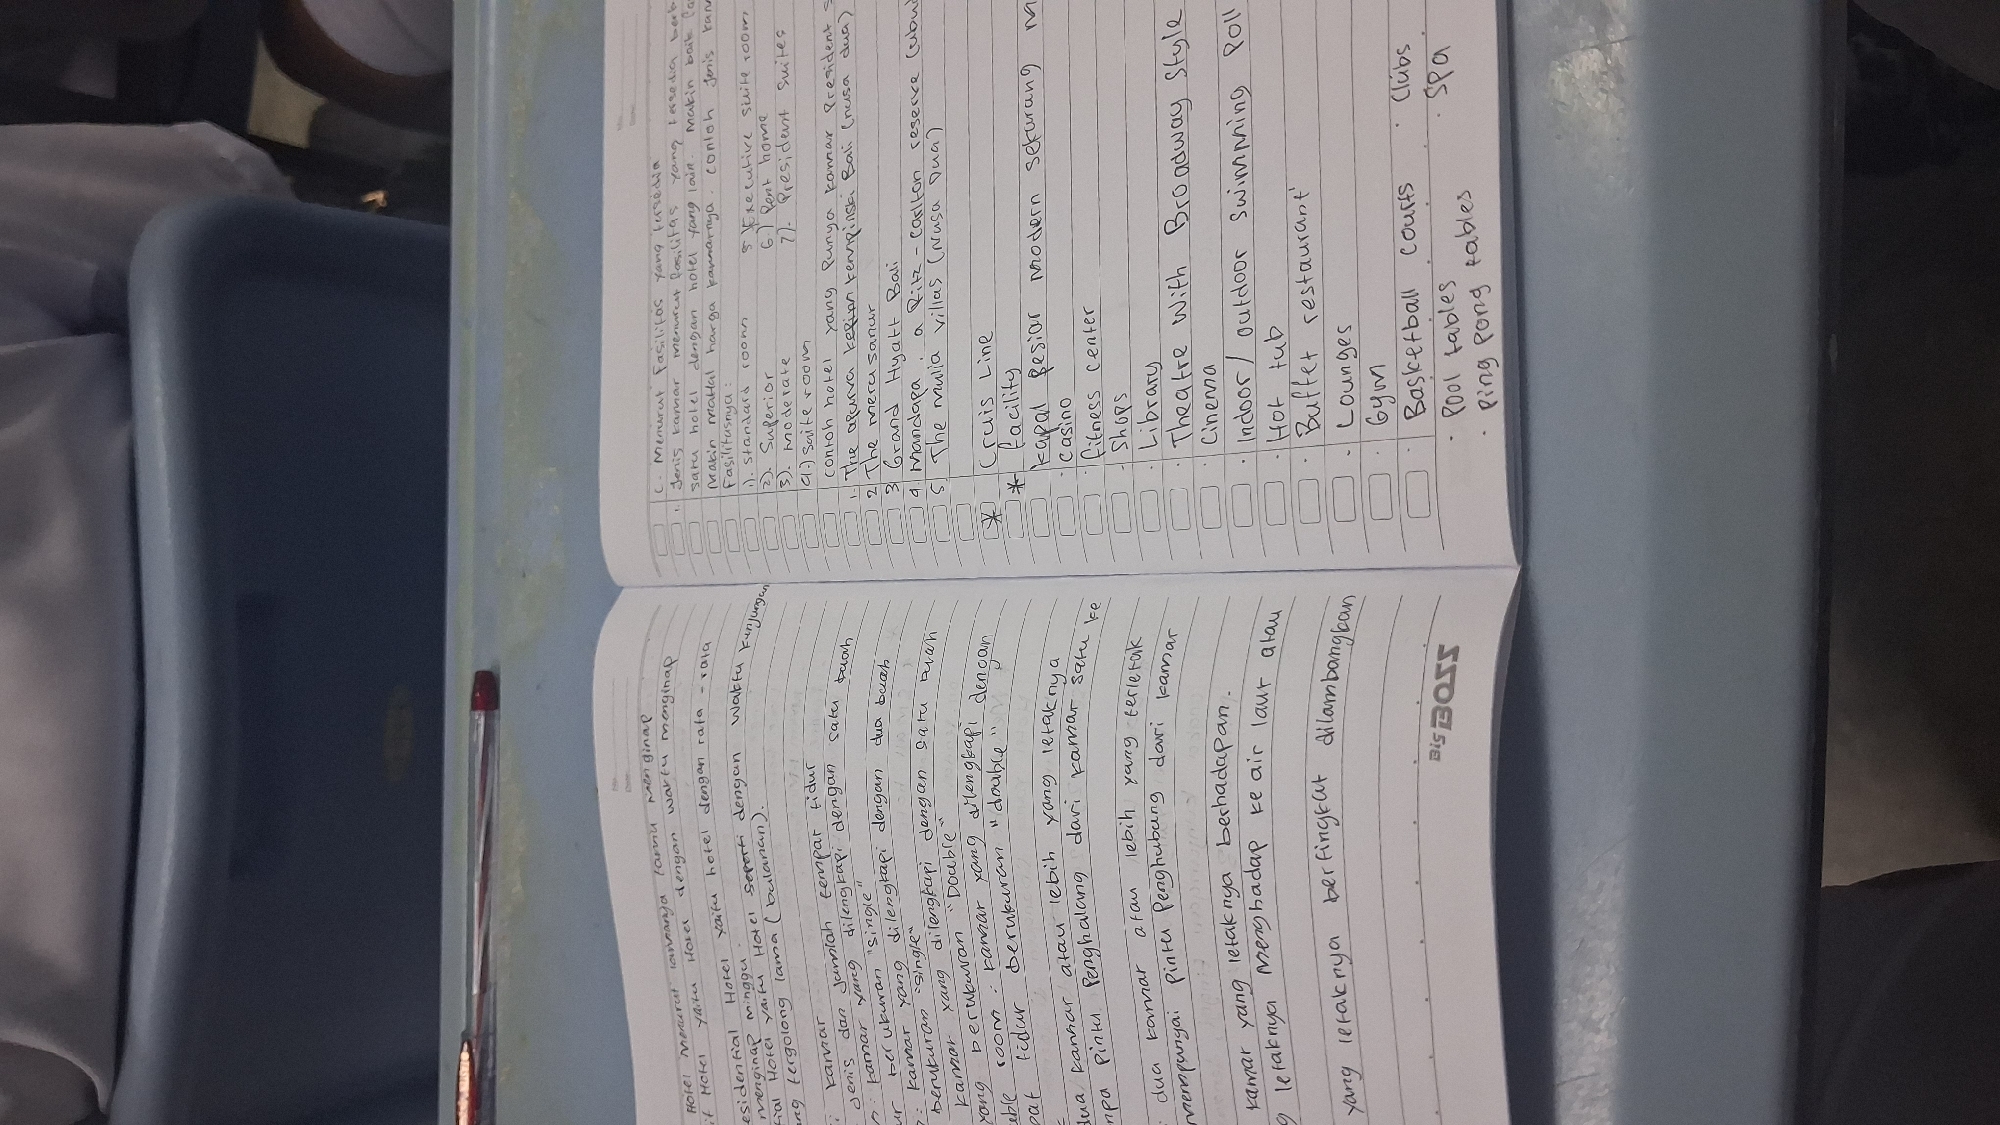 Hotel menurut lamanya tamu menginap
Hotel yaitu Hotel dengan waktu menginap
Hotel yaitu hotel dengan rata - rata
menginap minggu.
Hotel yaitu Hotel seperti dengan waktu kunjungan
tergolong lama (bulanan).
kamar
Jenis dan Jumlah tempat tidur
kamar yang dilengkapi dengan satu buah
berukuran "single"
kamar yang dilengkapi dengan dua buah
berukuran "single"
kamar yang dilengkapi dengan satu buah
berukuran "Double"
room : kamar yang dilengkapi dengan
tidur berukuran "double"
dua kamar atau lebih yang letaknya
pintu Penghalang dari kamar satu ke
dua kamar atau lebih yang terletak
mempunyai pintu Penghubung dari kamar
kamar yang letaknya berhadapan.
letaknya menghadap ke air laut atau
yang letaknya berfingkat dilambangkan
Bis BOSS
C. Menurut Fasilitas yang tersedia
1. Jenis kamar menurut fasilitas yang tersedia
satu hotel dengan hotel yang lain. Makin baik
makin mahal harga kamarnya. contoh jenis
Fasilitasnya:
1). Standard room 5 Executive suite room
2). Superior 6) Pent home
3). Moderate 7). President suites
4.) Suite room
contoh hotel yang Punya kamar President
1. The apurva kempinski Bali (nusa dua)
2 The meru sanur
3 Grand Hyatt Bali
4 Mandapa, a Ritz - carlton reserve
5. The mulia villas (Nusa Dua)
* Cruis Line
* facility
kapal Pesiar modern sekarang
· casino
· fitness center
· Shops
· Library
· Theatre with Broadway Style
· Cinema
· Indoor / outdoor swimming Poll
· Hot tub
· Buffet restaurant
· Lounges
· Gym
· Basketball courts · Clubs
· Pool tables · SPA
· Ping Pong tables